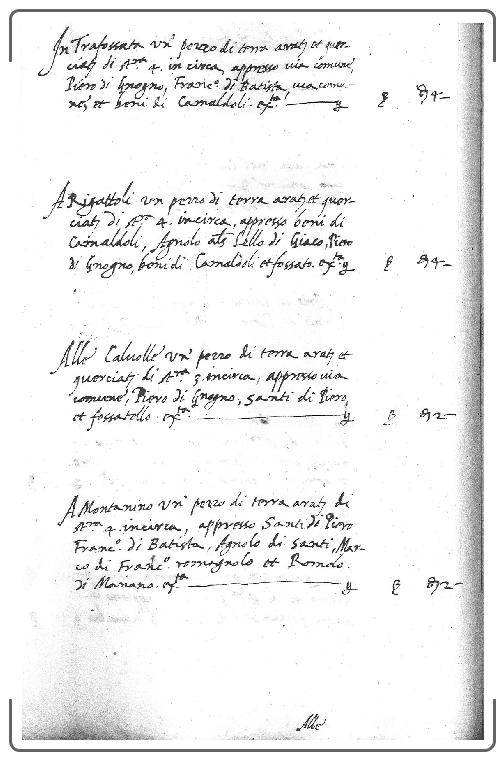 In Trafossata un' pezzo di terra arat; et quer-
ciat; di st.ra 4. in circa, appresso via comune,
Piero di Gnogno, Franc.o di Batista, via comu-
ne, et beni di Camaldoli.
A Rigattoli un pezzo di terra arat; et quer-
ciat; di st.ra 4. incirca, appresso beni di
Camaldoli, Agnolo als Lello di Giaco, Piero
di Gnogno, beni di Camaldoli et fossato.
Alle Calvolle un' pezzo di terra arat; et
querciat; di st.ra 3. incirca, appresso via
comune, Piero di Gnogno, Santi di Piero,
et fossatello.
A Montanino un' pezzo di terra arat; di
st.ra 4. incirca, appresso Santi di Piero
Franc.o di Batista, Agnolo di Santi, Mar-
co di Franc.o romagnolo et Romolo
di Mariano.
Alle